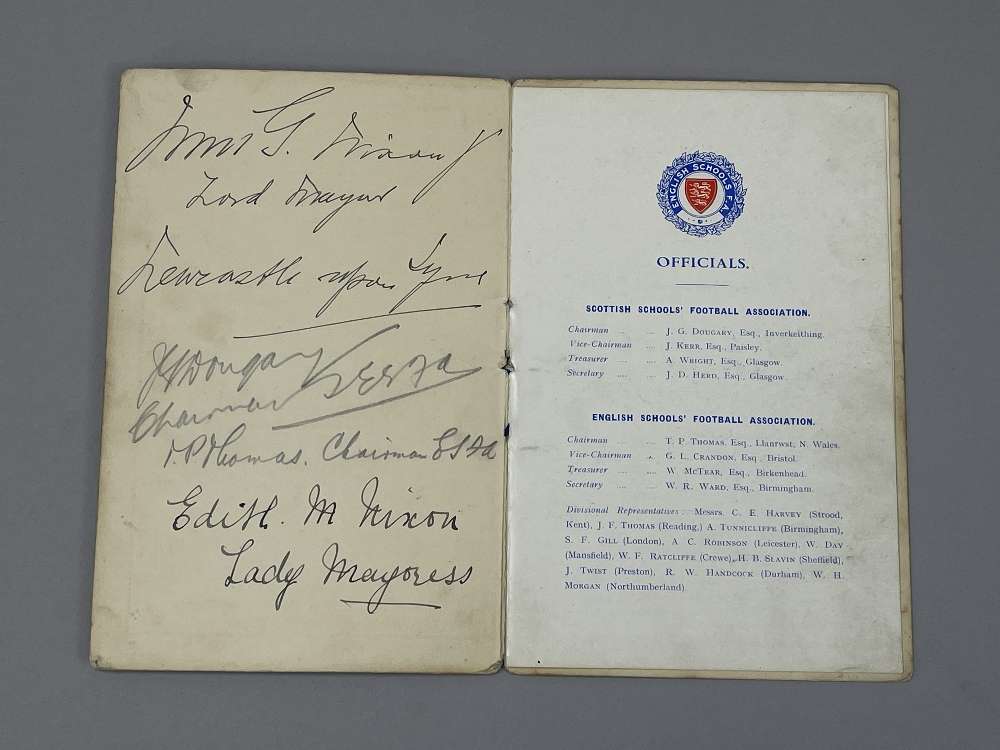 G. Nixon
Lord Mayor
Newcastle upon Tyne
J G Dougary
Chairman
T. P Thomas. Chairman ESFA
Edith. M Nixon
Lady Mayoress
ENGLISH SCHOOLS F.A.
OFFICIALS.
SCOTTISH SCHOOLS' FOOTBALL ASSOCIATION.
Chairman .. .... J. G. DOUGARY, Esq., Inverkeithing.
Vice-Chairman .... J. KERR, Esq., Paisley.
Treasurer .... .... A. WRIGHT, Esq., Glasgow.
Secretary .... .... J. D. HERD, Esq., Glasgow.
ENGLISH SCHOOLS' FOOTBALL ASSOCIATION.
Chairman .... .... T. P. THOMAS, Esq., Llanrwst, N. Wales.
Vice-Chairman .. G. L. CRANDON, Esq., Bristol.
Treasurer .... .... W. McTEAR, Esq., Birkenhead.
Secretary .... .... W. R. WARD, Esq., Birmingham.
Divisional Representatives: Messrs. C. E. HARVEY (Strood,
Kent), J. F. THOMAS (Reading,) A. TUNNICLIFFE (Birmingham),
S. F. GILL (London), A. C. ROBINSON (Leicester), W. DAY
(Mansfield), W. F. RATCLIFFE (Crewe), H. B. SLAVIN (Sheffield),
J. TWIST (Preston), R. W. HANDCOCK (Durham), W. H.
MORGAN (Northumberland)